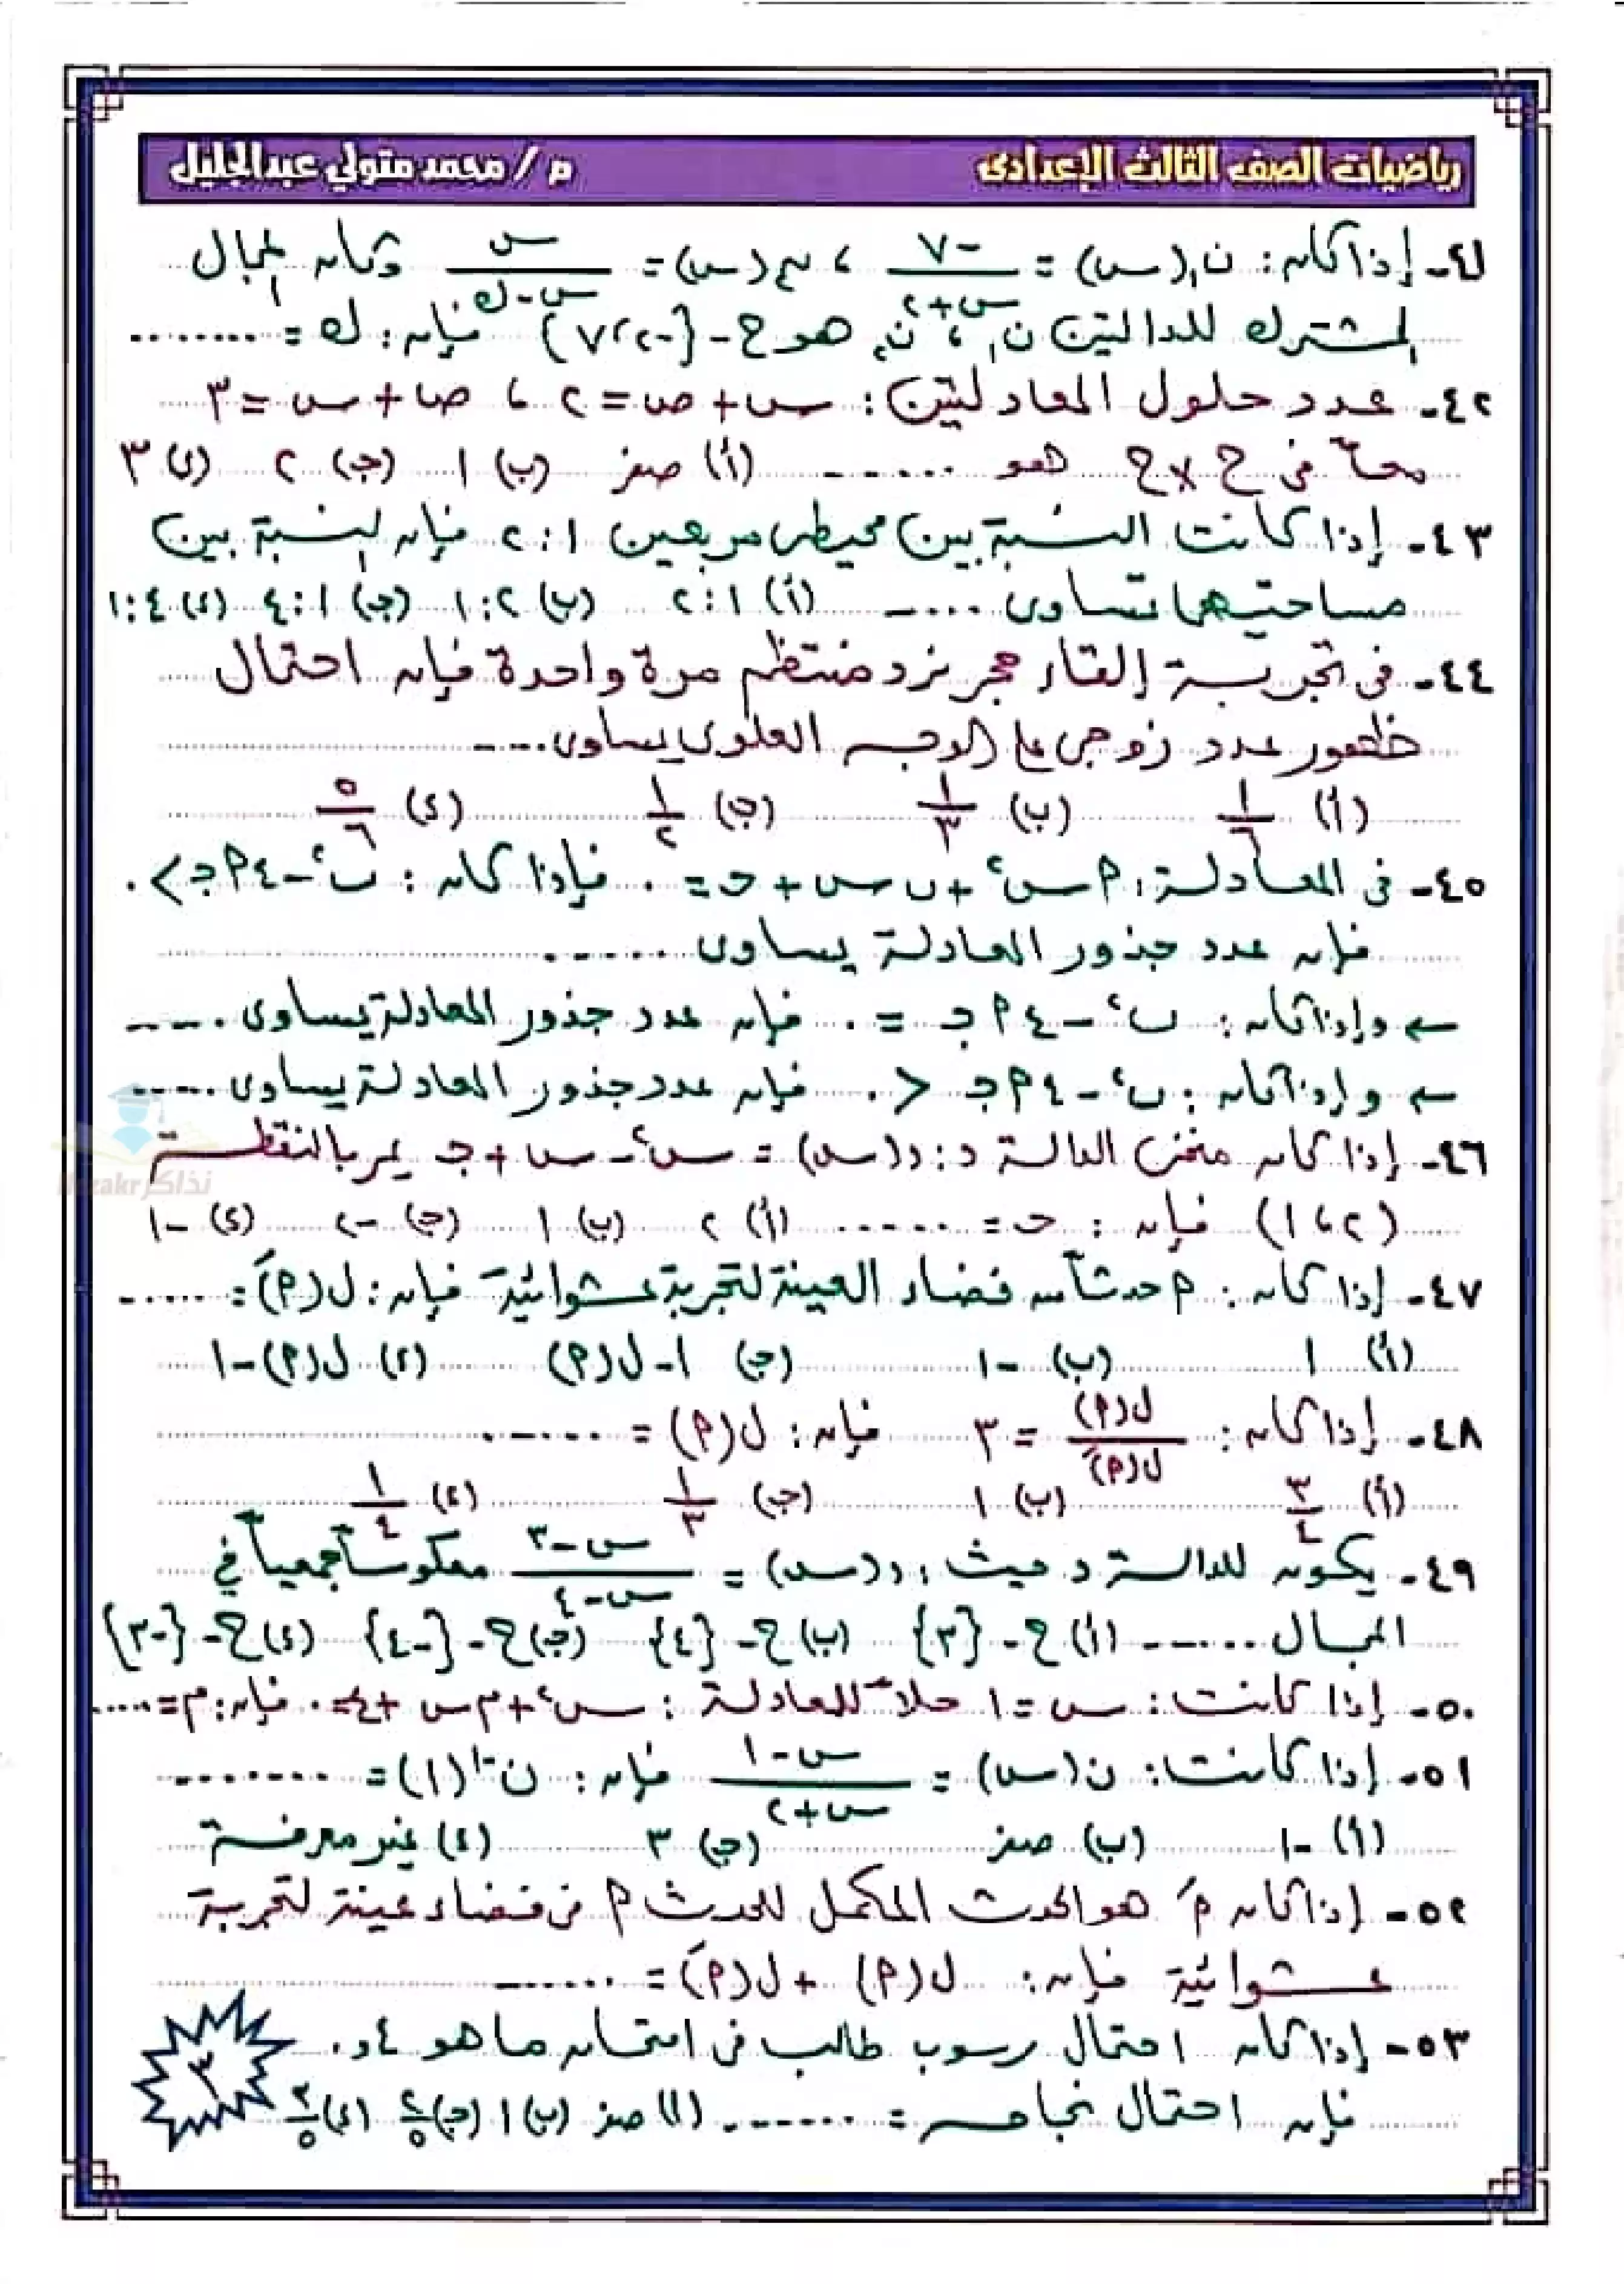 رياضيات الصف الثالث الإعدادى
م / محمد متولي عبدالجليل
٤١- إذا كان: ن١(س) = -٧ / س+٢ ، ن٢(س) = س / س-ك وكان المجال
المشترك للدالتين ن١ ، ن٢ هو ح-{-٢،٧} فإن: ك = ........
٤٢- عدد حلول المعادلتين: س+ص=٢ ، ص+س=٣
معاً فى ح×ح هو ...... (أ) صفر (ب) ١ (ج) ٢ (د) ٣
٤٣- إذا كانت النسبة بين محيطى مربعين ١:٢ فإن النسبة بين
مساحتيهما تساوى ..... (أ) ١:٢ (ب) ٢:١ (ج) ١:٤ (د) ٤:١
٤٤- فى تجربة إلقاء حجر نرد منتظم مرة واحدة فإن احتمال
ظهور عدد زوجى على الوجه العلوى يساوى.....
(أ) ١/٦ (ب) ١/٣ (ج) ١/٢ (د) ٥/٦
٤٥- فى المعادلة: م س٢ + ب س + ح = ٠ فإذا كان: ب٢-٤م ج > ٠
فإن عدد جذور المعادلة يساوى ......
← وإذا كان: ب٢ - ٤م ج = ٠ فإن عدد جذور المعادلة يساوى .....
← وإذا كان: ب٢ - ٤م ج < ٠ فإن عدد جذور المعادلة يساوى .....
٤٦- إذا كان منحنى الدالة د: د(س) = س٢-س+ج يمر بالنقطة
(٢،١) فإن: ح = ...... (أ) ٢ (ب) ١ (ج) -٢ (د) -١
٤٧- إذا كان: م حدثاً من فضاء العينة لتجربة عشوائية فإن: ل(مَ) = .....
(أ) ١ (ب) -١ (ج) ١-ل(م) (د) ل(م)-١
٤٨- إذا كان: ل(م) / ل(مَ) = ٣ فإن: ل(م) = ......
(أ) ٣/٤ (ب) ١ (ج) ١/٣ (د) ١/٤
٤٩- يكون للدالة د حيث: د(س) = س-٣ / س-٤ معكوساً جمعياً في
المجال ...... (أ) ح-{٣} (ب) ح-{٤} (ج) ح-{-٤} (د) ح-{-٣}
٥٠- إذا كانت: س=١ حلاً للمعادلة: س٢+م س+٤=٠ فإن: م=.....
٥١- إذا كانت: ن(س) = س-١ / س+٢ فإن: ن-١(١) = ........
(أ) -١ (ب) صفر (ج) ٣ (د) غير معرفة
٥٢- إذا كان مَ هو الحدث المكمل للحدث م فى فضاء عينة لتجربة
عشوائية فإن: ل(م) + ل(مَ) = ......
٥٣- إذا كان احتمال رسوب طالب فى امتحان ما هو ٤و٠
فإن احتمال نجاحه = ...... (أ) صفر (ب) ١ (ج) ٢/٥ (د) ٣/٥
٣
نذاكر